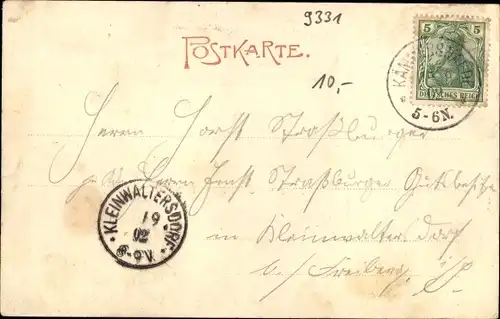 9331
POSTKARTE.
10,-
5 5
DEUTSCHES REICH
5-6N.
Herrn Horst Straßburger
Herrn Ernst Straßburger Gutsbesitz
in Kleinwaltersdorf
b/ Freiberg i/S.
KLEINWALTERSDORF
19
02
6-9V.